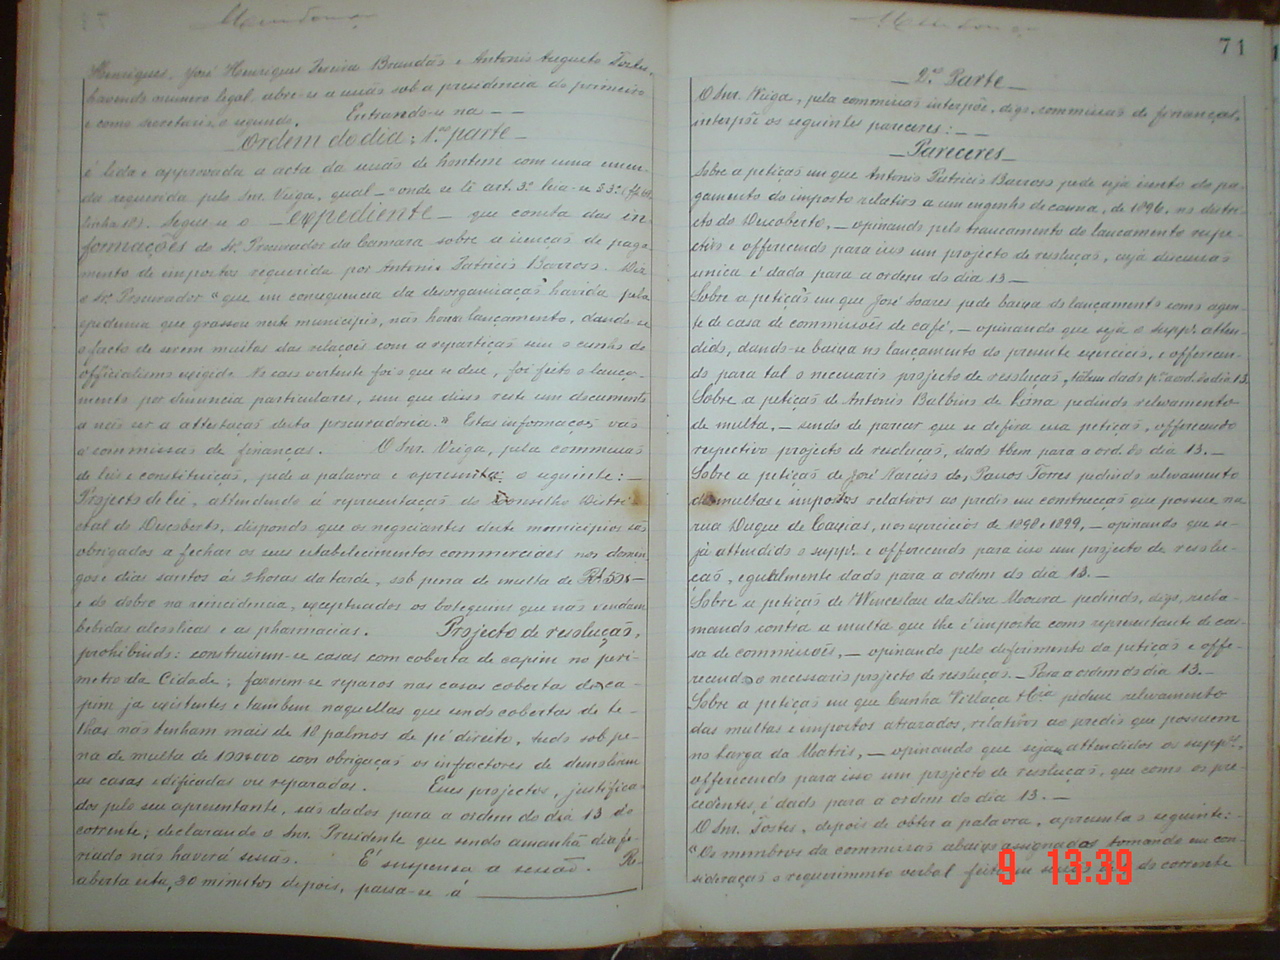 Mendonça
Henriques, José Henrique Pereira Brandão e Antonio Augusto Tostes,
havendo numero legal, abre-se a sessão sob a presidencia do primeiro
e como secretario, o segundo. Entrando-se na — —
Ordem do dia; 1.ª parte —
é lida e approvada a acta da sessão de hontem com uma emen-
da requerida pelo Snr. Veiga, qual — "onde se lê art. 3º leia-se § 3º
linha 18). Segue-se o — Expediente — que consta das in-
formações do Sr. Procurador da Camara sobre a isenção de paga-
mento de impostos requerida por Antonio Patricio Barroso. Diz
o Sr. Procurador "que em consequencia da desorganisação havida pela
epidemia que grassou neste municipio, não houve lançamento, dando-se
o facto de serem muitas das relações com a repartição sem o cunho do
officialismo exigido. No caso vertente foi o que se deu, foi feito o lança-
mento por denuncia particulares, sem que disso reste um documento
a não ser a attestação desta procuradoria." Estas informações vão
á commissão de finanças. O Snr. Veiga, pela commissão
de leis e constituição, pede a palavra e apresenta o seguinte: —
Projecto de lei, attendendo á representação do Conselho Distri-
ctal do Descoberto, dispondo que os negociantes deste municipio são
obrigados a fechar os seus estabelecimentos commerciaes nos domin-
gos e dias santos ás 2 horas da tarde, sob pena de multa de Rs. 50$ —
e do dobro na reincidencia, exceptuados os botequins que não vendam
bebidas alcoolicas e as pharmacias. Projecto de resolução,
prohibindo: construirem-se casas com coberta de capim no peri-
metro da Cidade; fazerem-se reparos nas casas cobertas de ca-
pim já existentes e tambem naquellas que sendo cobertas de te-
lhas não tenham mais de 18 palmos de pé direito, tudo sob pe-
na de multa de 100$000 com obrigação os infractores de demolirem
as casas edificadas ou reparadas. Esses projectos, justifica-
dos pelo seu apresentante, são dados para a ordem do dia 13 do
corrente; declarando o Snr. Presidente que sendo amanhã dia fe-
riado não haverá sessão. É suspensa a sessão. Re-
aberta esta, 30 minutos depois, passa-se á
Mendonça
71
— 2.ª Parte —
O Snr. Veiga, pela commissão interpõe, digo, commissão de finanças,
interpõe os seguintes pareceres: — —
— Pareceres —
Sobre a petição em que Antonio Patricio Barroso pede seja isento do pa-
gamento do imposto relativo a um engenho de canna, de 1896, no distri-
cto do Descoberto, — opinando pelo trancamento do lançamento respe-
ctivo e offerecendo para isso um projecto de resolução, cuja discussão
unica é dada para a ordem do dia 13 —
Sobre a petição em que José Soares pede baixa do lançamento como agen-
te de casa de commissões de café, — opinando que seja o supp.e atten-
dido, dando-se baixa no lançamento do presente exercicio, e offerecen-
do para tal o necessario projecto de resolução, tãbem dado p.ª a ord. do dia 13.
Sobre a petição de Antonio Balbino de Lima pedindo relevamento
de multa, — sendo de parecer que se defira essa petição, offerecendo
respectivo projecto de resolução, dado tbem para a ord. do dia 13. —
Sobre a petição de José Narciso dos Passos Torres pedindo relevamento
de multas e impostos relativos ao predio em construcção que possue na
rua Duque de Caxias, nos exercicios de 1898 e 1899, — opinando que se-
ja attendido o supp.e e offerecendo para isso um projecto de resolu-
ção, egualmente dado para a ordem do dia 13. —
Sobre a petição de Wenceslau da Silva Moura pedindo, digo, recla-
mando contra a multa que lhe é imposta como representante de ca-
sa de commissões, — opinando pelo deferimento da petição e offe-
recendo o necessario projecto de resolução. — Para a ordem do dia 13. —
Sobre a petição em que Cunha Villaça & Cia pedem relevamento
das multas e impostos atrazados, relativos ao predio que possuem
no Largo da Matris, — opinando que sejam attendidos os supp.es,
offerecendo para isso um projecto de resolução, que como os pre-
cedentes, é dado para a ordem do dia 13. —
O Snr. Tostes, depois de obter a palavra, apresenta o seguinte: —
"Os membros da commissão abaixo assignados, tomando em con-
sideração o requerimento verbal feito em do corrente
9 13:39